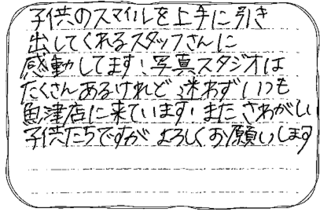 子供のスマイルを上手に引き
出してくれるスタッフさんに
感動してます!写真スタジオは
たくさんあるけれど迷わずいつも
魚津店に来ています!またさわがしい
子供たちですがよろしくお願いします